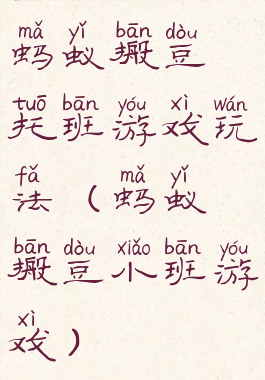 mǎ yǐ bān dòu
蚂蚁搬豆
tuō bān yóu xì wán
托班游戏玩
fǎ mǎ yǐ
法（蚂蚁
bān dòu xiǎo bān yóu
搬豆小班游
xì
戏）